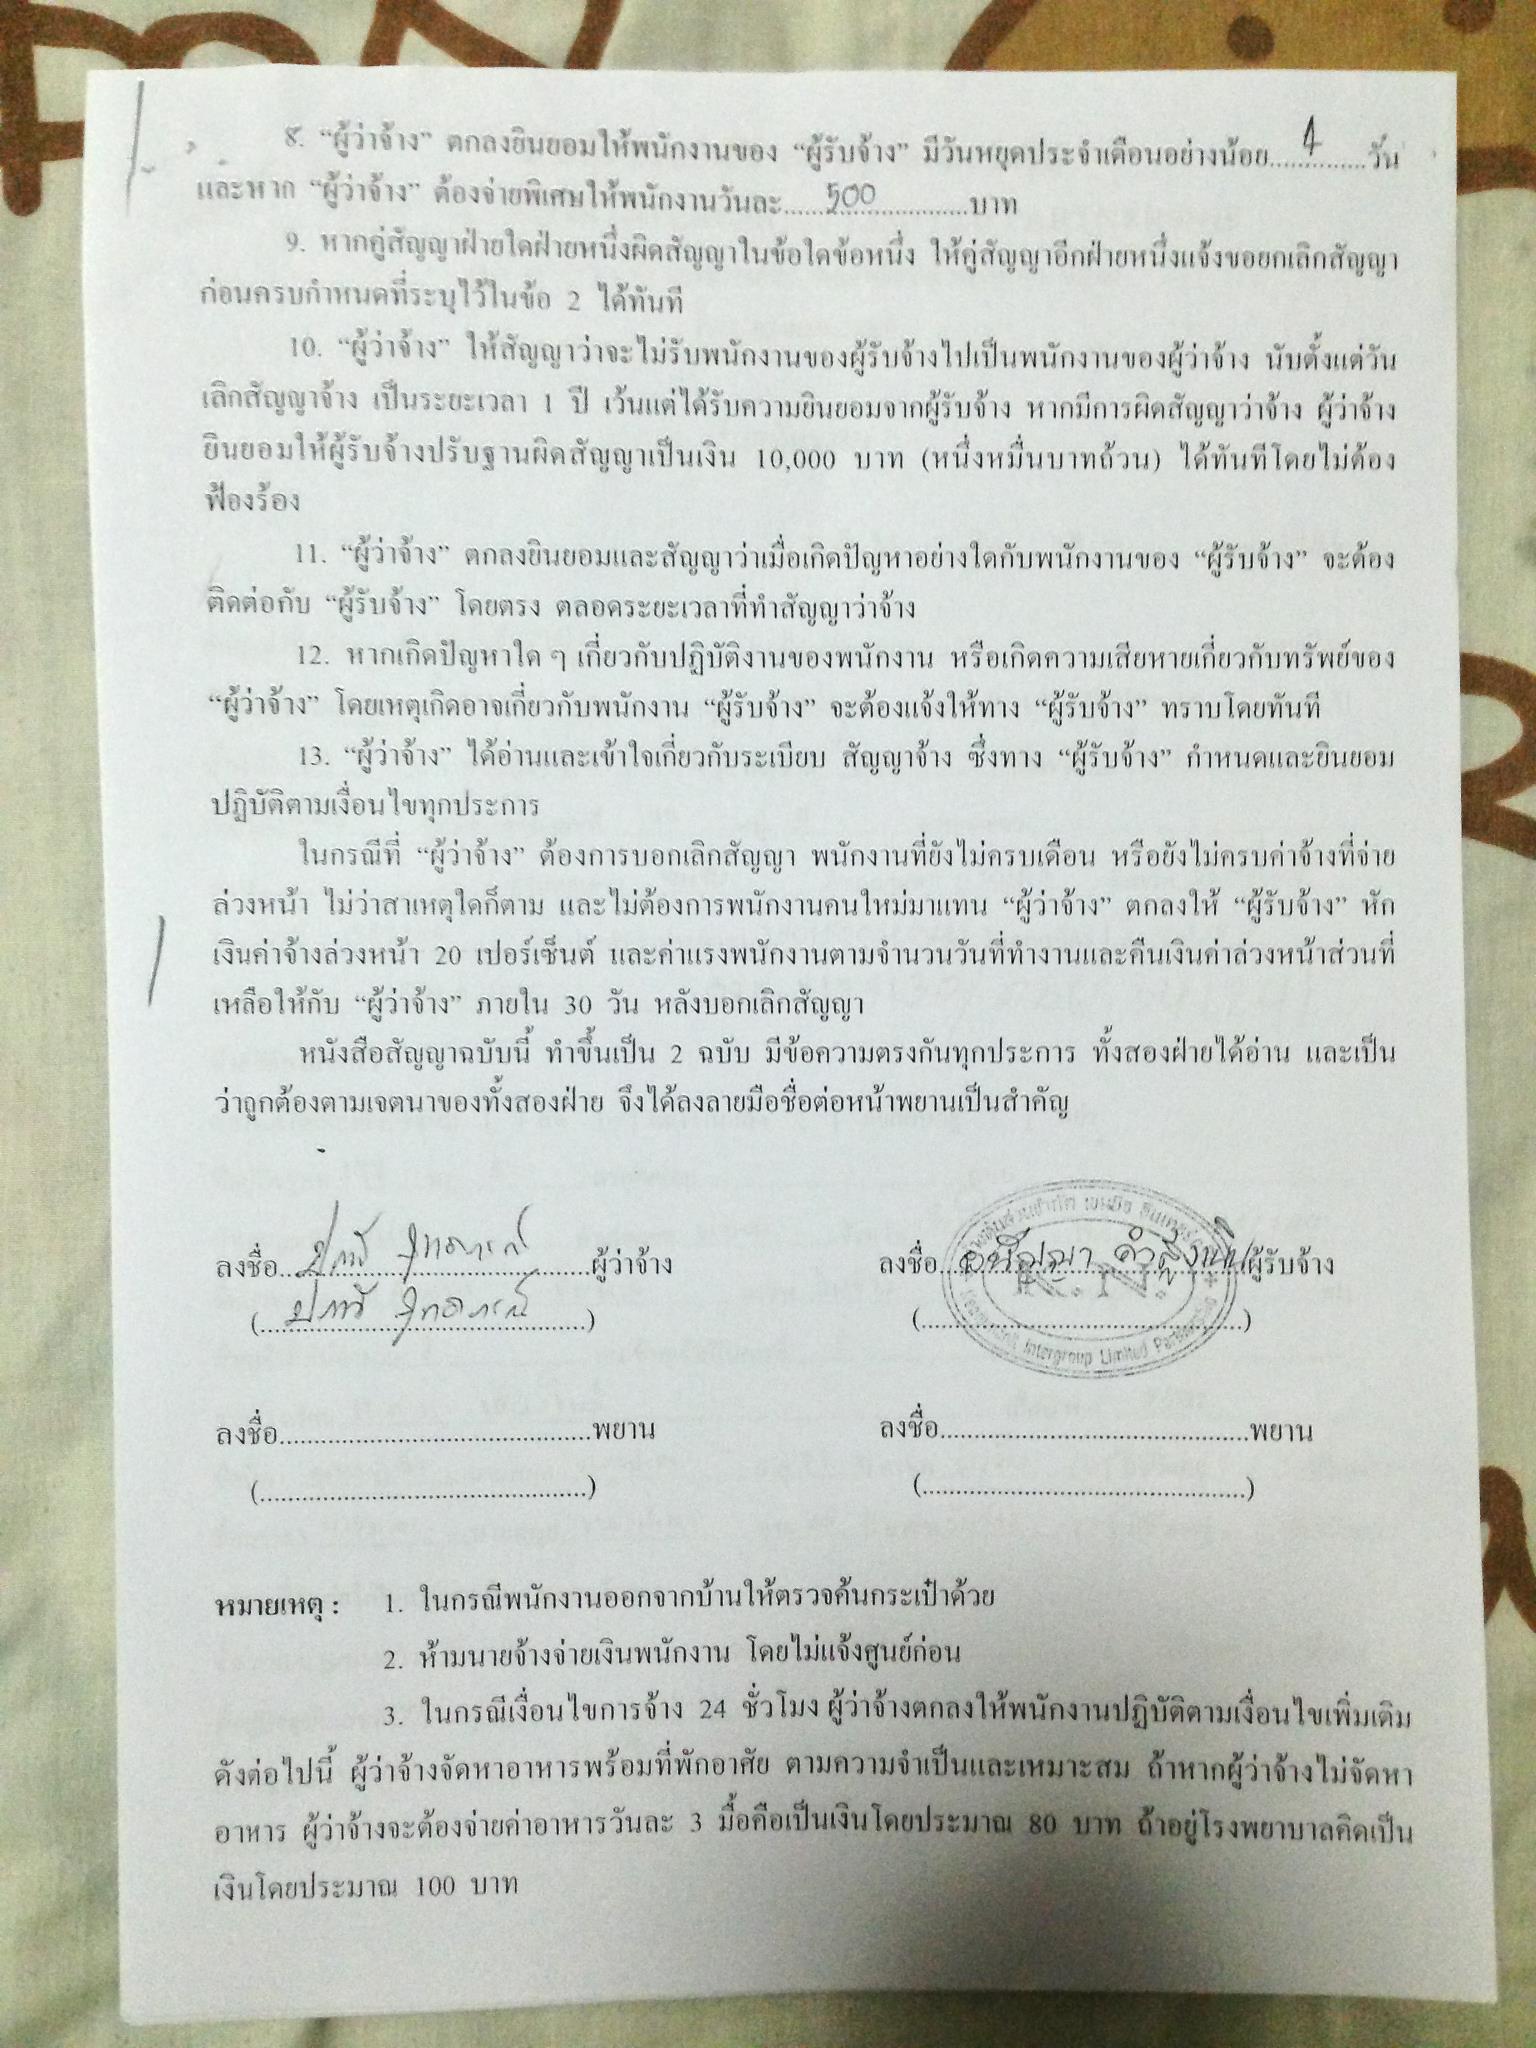 8. “ผู้ว่าจ้าง” ตกลงยินยอมให้พนักงานของ “ผู้รับจ้าง” มีวันหยุดประจำเดือนอย่างน้อย.....4.....วัน
และหาก “ผู้ว่าจ้าง” ต้องจ่ายพิเศษให้พนักงานวันละ.....500.....บาท
9. หากคู่สัญญาฝ่ายใดฝ่ายหนึ่งผิดสัญญาในข้อใดข้อหนึ่ง ให้คู่สัญญาอีกฝ่ายหนึ่งแจ้งขอยกเลิกสัญญา
ก่อนครบกำหนดที่ระบุไว้ในข้อ 2 ได้ทันที
10. “ผู้ว่าจ้าง” ให้สัญญาว่าจะไม่รับพนักงานของผู้รับจ้างไปเป็นพนักงานของผู้ว่าจ้าง นับตั้งแต่วัน
เลิกสัญญาจ้าง เป็นระยะเวลา 1 ปี เว้นแต่ได้รับความยินยอมจากผู้รับจ้าง หากมีการผิดสัญญาว่าจ้าง ผู้ว่าจ้าง
ยินยอมให้ผู้รับจ้างปรับฐานผิดสัญญาเป็นเงิน 10,000 บาท (หนึ่งหมื่นบาทถ้วน) ได้ทันทีโดยไม่ต้อง
ฟ้องร้อง
11. “ผู้ว่าจ้าง” ตกลงยินยอมและสัญญาว่าเมื่อเกิดปัญหาอย่างใดกับพนักงานของ “ผู้รับจ้าง” จะต้อง
ติดต่อกับ “ผู้รับจ้าง” โดยตรง ตลอดระยะเวลาที่ทำสัญญาว่าจ้าง
12. หากเกิดปัญหาใด ๆ เกี่ยวกับปฏิบัติงานของพนักงาน หรือเกิดความเสียหายเกี่ยวกับทรัพย์ของ
“ผู้ว่าจ้าง” โดยเหตุเกิดอาจเกี่ยวกับพนักงาน “ผู้รับจ้าง” จะต้องแจ้งให้ทาง “ผู้รับจ้าง” ทราบโดยทันที
13. “ผู้ว่าจ้าง” ได้อ่านและเข้าใจเกี่ยวกับระเบียบ สัญญาจ้าง ซึ่งทาง “ผู้รับจ้าง” กำหนดและยินยอม
ปฏิบัติตามเงื่อนไขทุกประการ
ในกรณีที่ “ผู้ว่าจ้าง” ต้องการบอกเลิกสัญญา พนักงานที่ยังไม่ครบเดือน หรือยังไม่ครบค่าจ้างที่จ่าย
ล่วงหน้า ไม่ว่าสาเหตุใดก็ตาม และไม่ต้องการพนักงานคนใหม่มาแทน “ผู้ว่าจ้าง” ตกลงให้ “ผู้รับจ้าง” หัก
เงินค่าจ้างล่วงหน้า 20 เปอร์เซ็นต์ และค่าแรงพนักงานตามจำนวนวันที่ทำงานและคืนเงินค่าล่วงหน้าส่วนที่
เหลือให้กับ “ผู้ว่าจ้าง” ภายใน 30 วัน หลังบอกเลิกสัญญา
หนังสือสัญญาฉบับนี้ ทำขึ้นเป็น 2 ฉบับ มีข้อความตรงกันทุกประการ ทั้งสองฝ่ายได้อ่าน และเป็น
ว่าถูกต้องตามเจตนาของทั้งสองฝ่าย จึงได้ลงลายมือชื่อต่อหน้าพยานเป็นสำคัญ
ลงชื่อ..........ผู้ว่าจ้าง ลงชื่อ..........ผู้รับจ้าง
(..........) (..........)
Intergroup Limited
ลงชื่อ..........พยาน ลงชื่อ..........พยาน
(..........) (..........)
หมายเหตุ : 1. ในกรณีพนักงานออกจากบ้านให้ตรวจค้นกระเป๋าด้วย
2. ห้ามนายจ้างจ่ายเงินพนักงาน โดยไม่แจ้งศูนย์ก่อน
3. ในกรณีเงื่อนไขการจ้าง 24 ชั่วโมง ผู้ว่าจ้างตกลงให้พนักงานปฏิบัติตามเงื่อนไขเพิ่มเติม
ดังต่อไปนี้ ผู้ว่าจ้างจัดหาอาหารพร้อมที่พักอาศัย ตามความจำเป็นและเหมาะสม ถ้าหากผู้ว่าจ้างไม่จัดหา
อาหาร ผู้ว่าจ้างจะต้องจ่ายค่าอาหารวันละ 3 มื้อคือเป็นเงินโดยประมาณ 80 บาท ถ้าอยู่โรงพยาบาลคิดเป็น
เงินโดยประมาณ 100 บาท